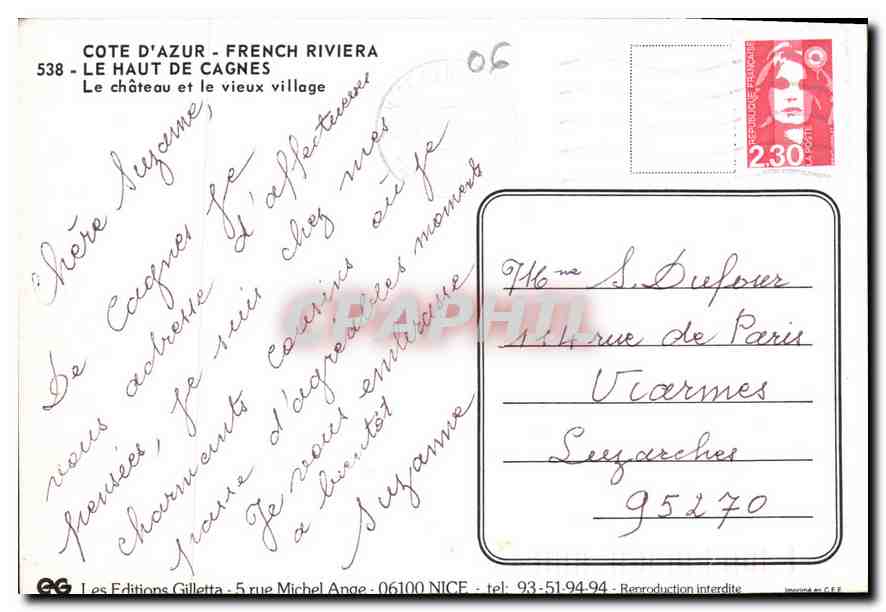 COTE D'AZUR - FRENCH RIVIERA
538 - LE HAUT DE CAGNES
Le château et le vieux village
06
REPUBLIQUE FRANÇAISE
2,30
LA POSTE
Chère Suzanne,
De Cagnes je
vous adresse d'affectueuses
pensées, je suis chez mes
charmants cousins où je
passe d'agréables moments
Je vous embrasse
a bientôt
Suzanne
Mme S. Dufour
114 rue de Paris
Viarmes
Luzarches
95270
CPAPHIL
EG Les Editions Gilletta - 5 rue Michel Ange - 06100 NICE - tel: 93-51-94-94 - Reproduction interdite
Imprimé en C.E.E.